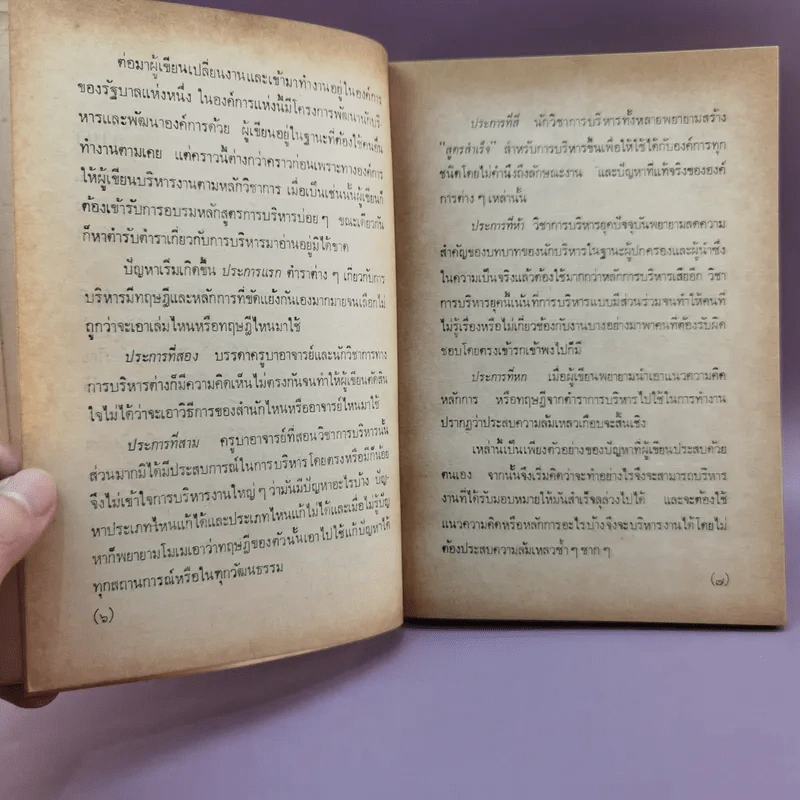 ต่อมาผู้เขียนเปลี่ยนงานและเข้ามาทำงานอยู่ในองค์การ
ของรัฐบาลแห่งหนึ่ง ในองค์การแห่งนี้มีโครงการพัฒนานักบริ-
หารและพัฒนาองค์การด้วย ผู้เขียนอยู่ในฐานะที่ต้องใช้คนอื่น
ทำงานตามเคย แต่คราวนี้ต่างกว่าคราวก่อนเพราะทางองค์การ
ให้ผู้เขียนบริหารงานตามหลักวิชาการ เมื่อเป็นเช่นนั้นผู้เขียนก็
ต้องเข้ารับการอบรมหลักสูตรการบริหารบ่อยๆ ขณะเดียวกัน
ก็หาตำรับตำราเกี่ยวกับการบริหารมาอ่านอยู่มิได้ขาด
ปัญหาเริ่มเกิดขึ้น ประการแรก ตำราต่างๆ เกี่ยวกับการ
บริหารมีทฤษฎีและหลักการที่ขัดแย้งกันเองมากมายจนเลือกไม่
ถูกว่าจะเอาเล่มไหนหรือทฤษฎีไหนมาใช้
ประการที่สอง บรรดาครูบาอาจารย์และนักวิชาการทาง
การบริหารต่างก็มีความคิดเห็นไม่ตรงกันจนทำให้ผู้เขียนตัดสิน
ใจไม่ได้ว่าจะเอาวิธีการของสำนักไหนหรืออาจารย์ไหนมาใช้
ประการที่สาม ครูบาอาจารย์ที่สอนวิชาการบริหารนั้น
ส่วนมากมิได้มีประสบการณ์ในการบริหารโดยตรงหรือมีก็น้อย
จึงไม่เข้าใจการบริหารงานใหญ่ๆ ว่ามันมีปัญหาอะไรบ้าง ปัญ-
หาประเภทไหนแก้ได้และประเภทไหนแก้ไม่ได้และเมื่อไม่รู้ปัญ-
หาก็พยายามโมเมเอาว่าทฤษฎีของตัวนั้นเอาไปใช้แก้ปัญหาได้
ทุกสถานการณ์หรือในทุกวัฒนธรรม
(๖)
ประการที่สี่ นักวิชาการบริหารทั้งหลายพยายามสร้าง
"สูตรสำเร็จ" สำหรับการบริหารขึ้นเพื่อให้ใช้ได้กับองค์การทุก
ชนิดโดยไม่คำนึงถึงลักษณะงาน และปัญหาที่แท้จริงขององค์
การต่างๆ เหล่านั้น
ประการที่ห้า วิชาการบริหารยุคปัจจุบันพยายามลดความ
สำคัญของบทบาทของนักบริหารในฐานะผู้ปกครองและผู้นำซึ่ง
ในความเป็นจริงแล้วต้องใช้มากกว่าหลักการบริหารเสียอีก วิชา
การบริหารยุคนี้เน้นที่การบริหารแบบมีส่วนร่วมจนทำให้คนที่
ไม่รู้เรื่องหรือไม่เกี่ยวข้องกับงานบางอย่างมาพาคนที่ต้องรับผิด
ชอบโดยตรงเข้ารกเข้าพงไปก็มี
ประการที่หก เมื่อผู้เขียนพยายามนำเอาแนวความคิด
หลักการ หรือทฤษฎีจากตำราการบริหารไปใช้ในการทำงาน
ปรากฏว่าประสบความล้มเหลวเกือบจะสิ้นเชิง
เหล่านี้เป็นเพียงตัวอย่างของปัญหาที่ผู้เขียนประสบด้วย
ตนเอง จากนั้นจึงเริ่มคิดว่าจะทำอย่างไรจึงจะสามารถบริหาร
งานที่ได้รับมอบหมายให้มันสำเร็จลุล่วงไปได้ และจะต้องใช้
แนวความคิดหรือหลักการอะไรบ้างจึงจะบริหารงานได้โดยไม่
ต้องประสบความล้มเหลวซ้ำๆ ซากๆ
(๗)